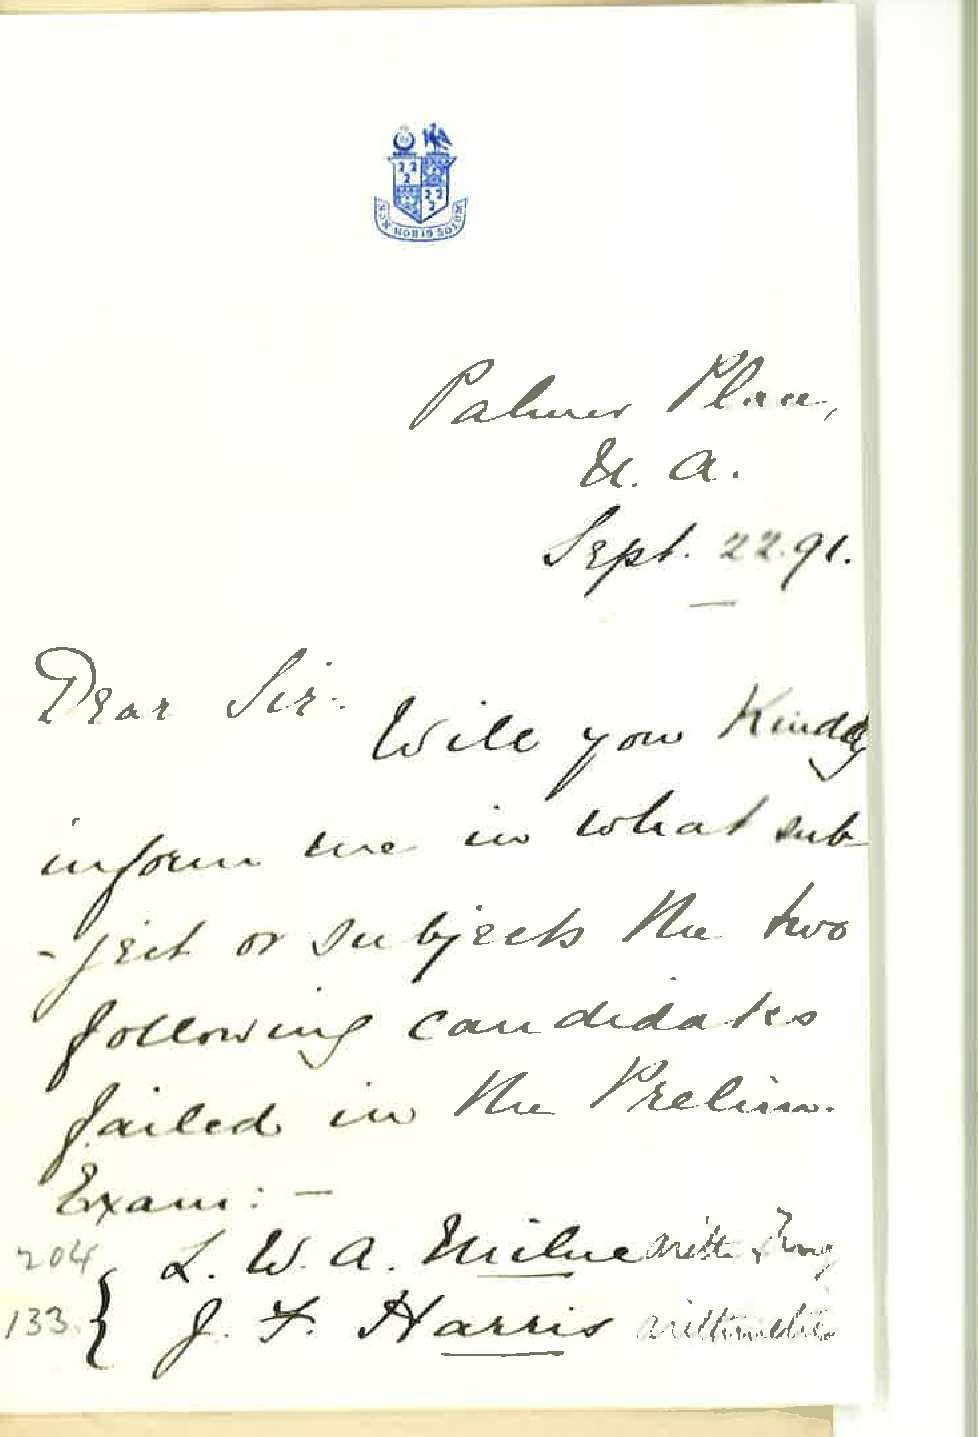 NON NOBIS SOLUM
Palmer Place,
N. A.
Sept. 22. 91.
Dear Sir.
Will you kindly
inform me in what sub-
-ject or subjects the two
following candidates
failed in the Prelim.
Exam: —
204 L. W. A. Milne arith &
133. J. F. Harris arithmetic